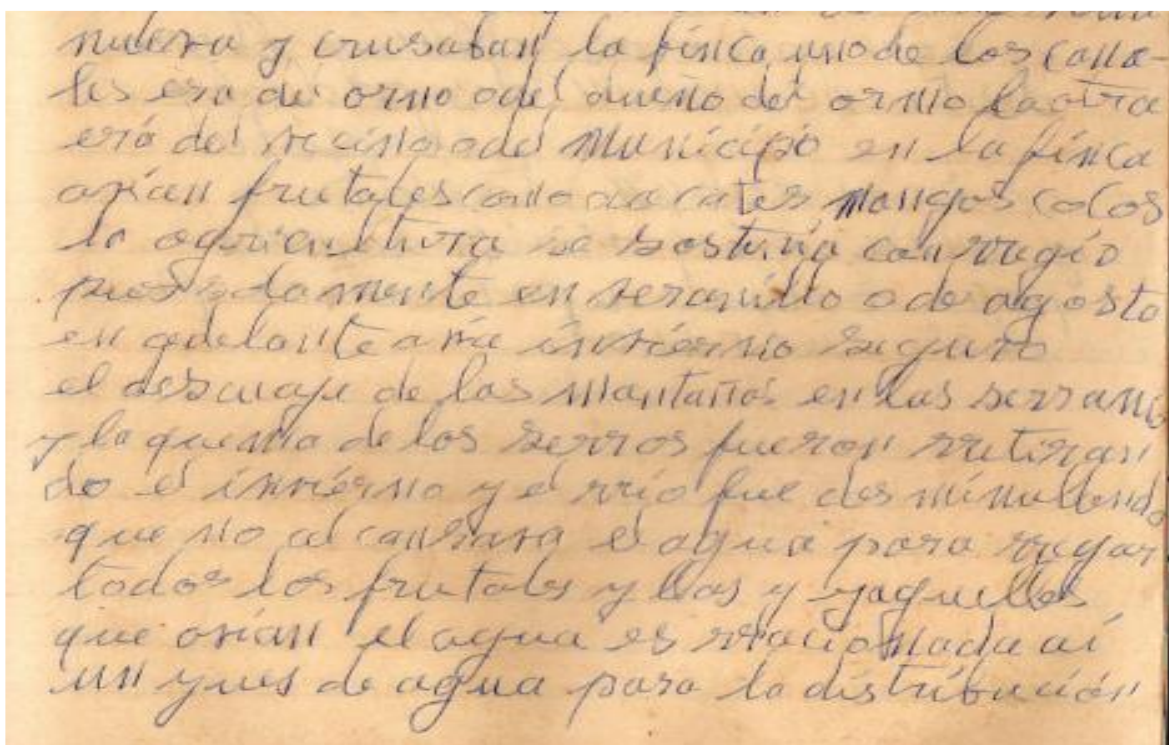 nuera y crusaban la finca uno de los cana-
les era de orno o del dueño del orno la otra
era del vecino o del Municipio en la finca
avian frutales como aacates mangos cocos
la agricultura se sostenia con rregio
pues solamente en veranillo o de agosto
en adelante avia invierno seguro
el descuaje de las montañas en las serranias
y la quema de los serros fueron rretiran
do el invierno y el rrio fue desminullendo
que no alcansara el agua para regar
todos los frutales y las y yaquelles
que avian el agua es rracionada ai
un yues de agua para la distribución